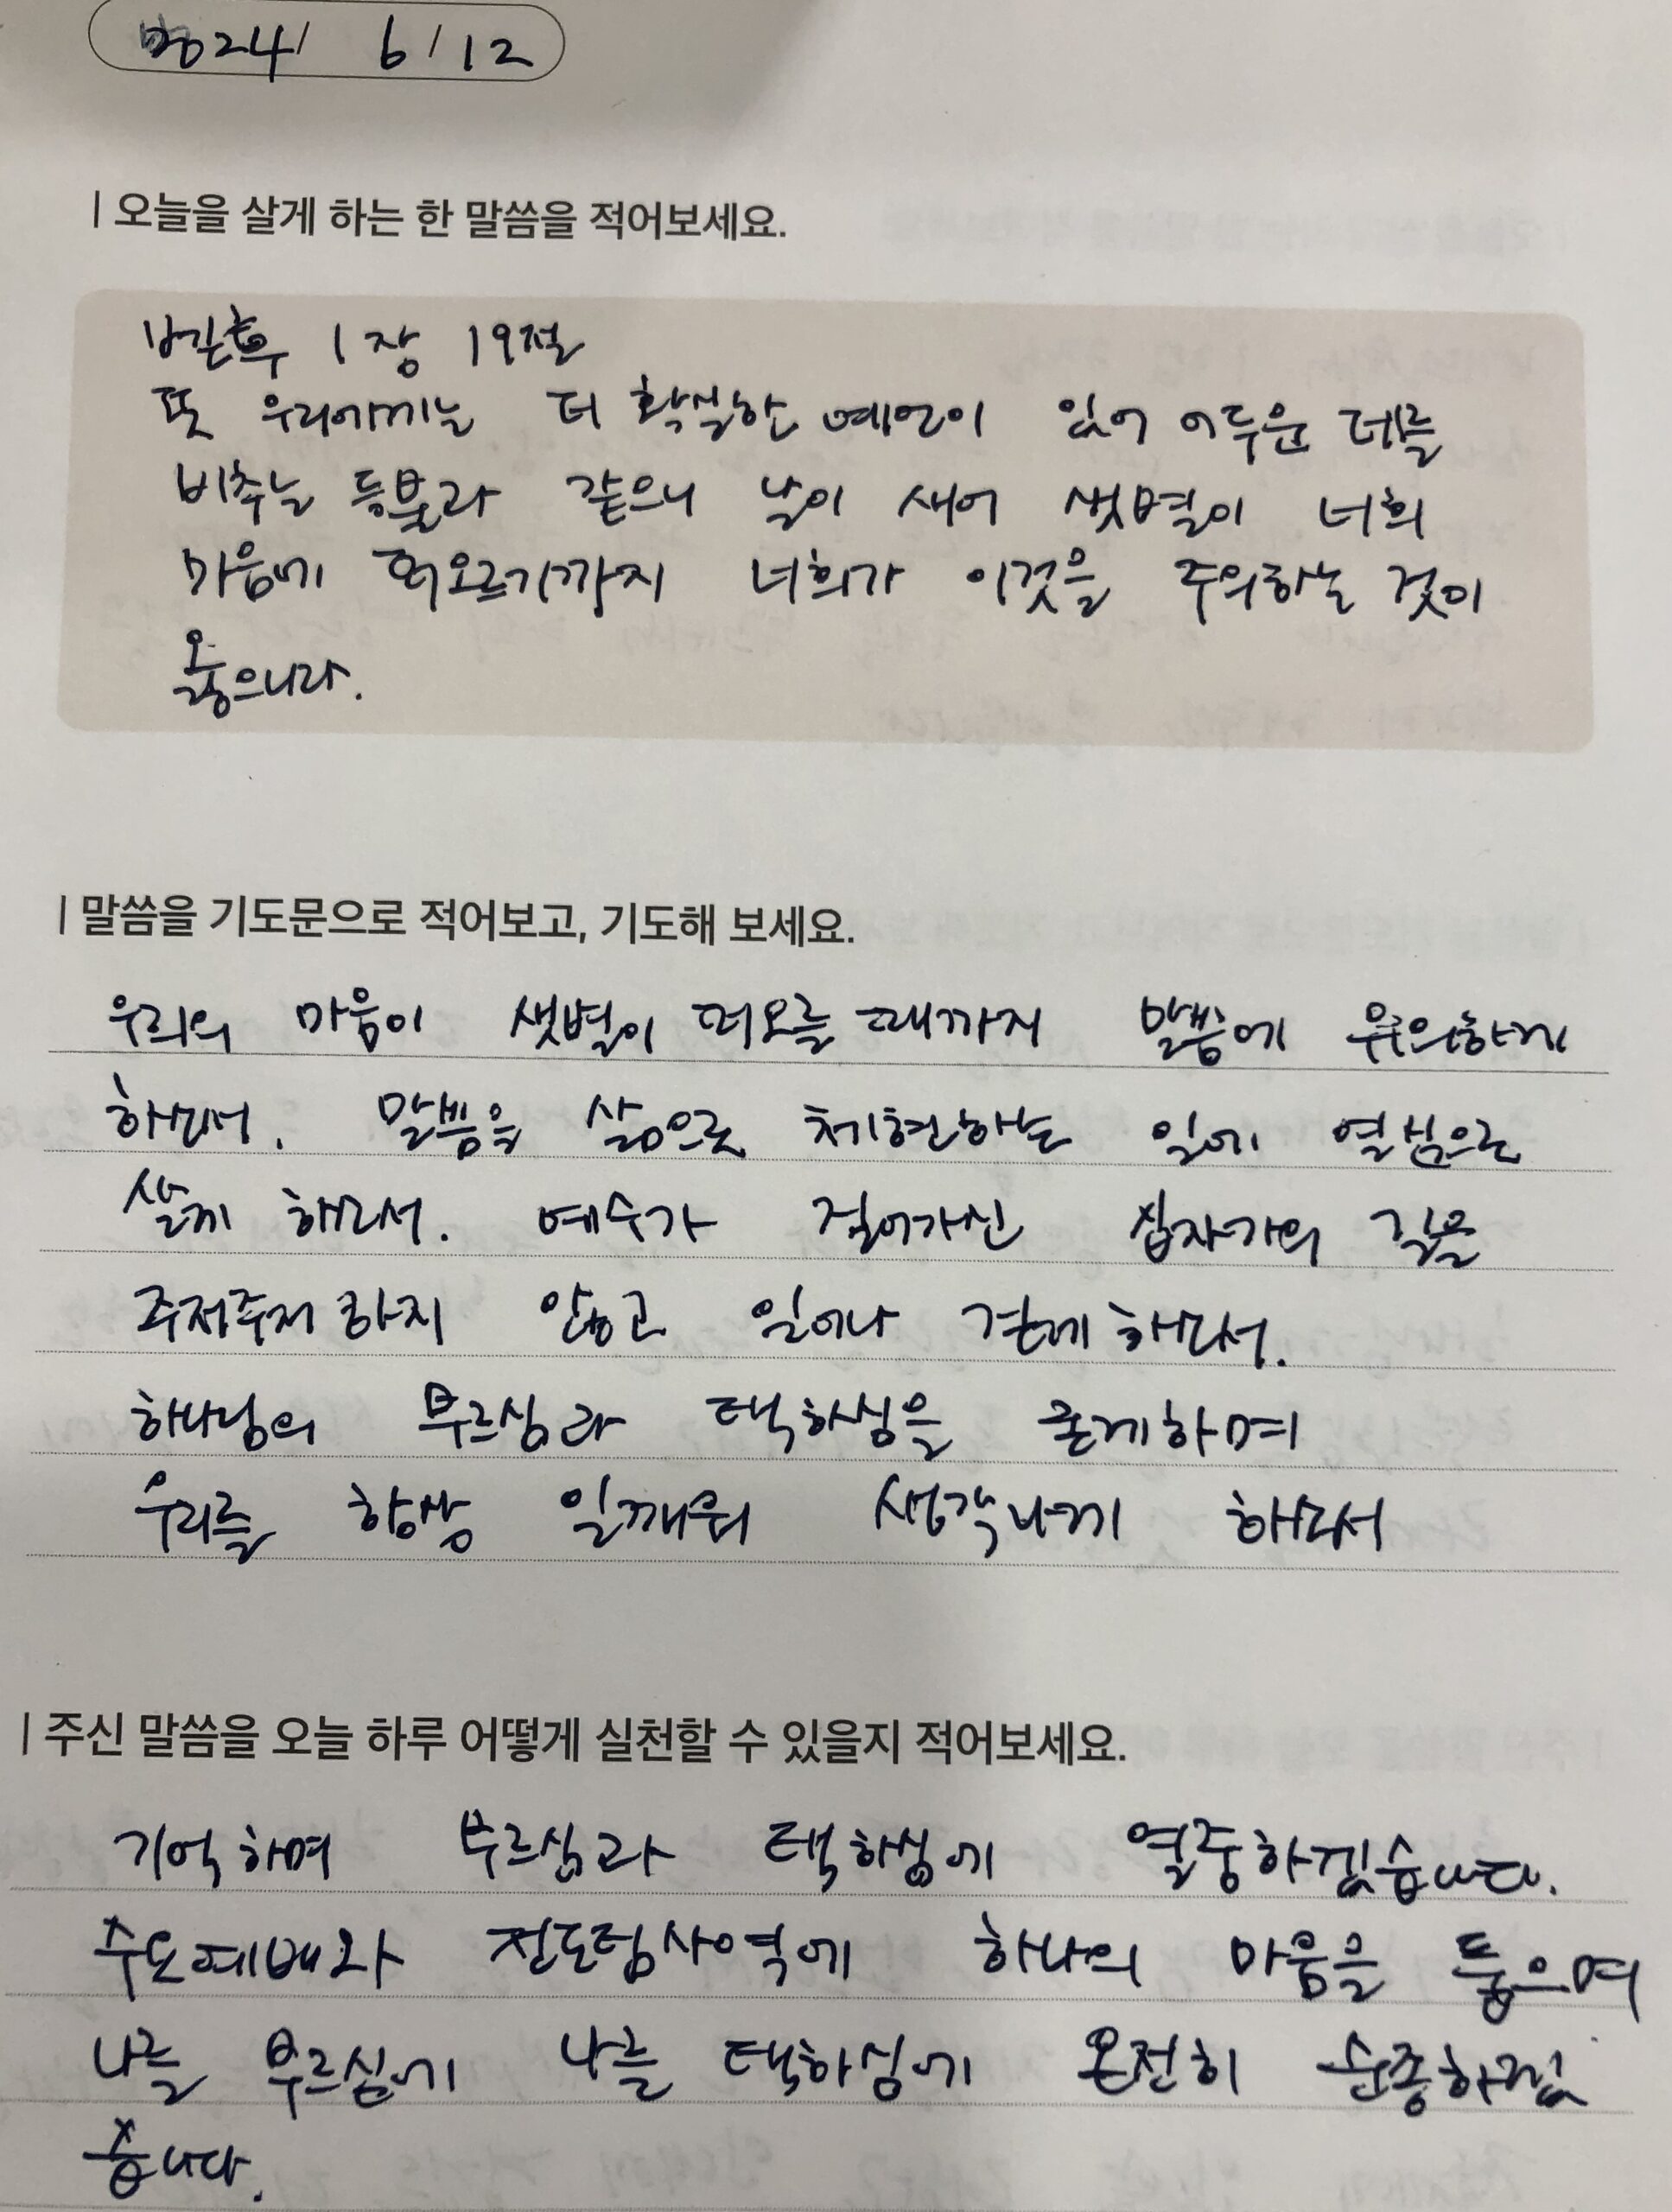 2024/ 6/12
| 오늘을 살게 하는 한 말씀을 적어보세요.
벧후 1장 19절
또 우리에게는 더 확실한 예언이 있어 어두운 데를
비추는 등불과 같으니 날이 새어 샛별이 너희
마음에 떠오르기까지 너희가 이것을 주의하는 것이
옳으니라.
| 말씀을 기도문으로 적어보고, 기도해 보세요.
우리의 마음이 샛별이 떠오를 때까지 말씀에 유의하게
하소서. 말씀을 삶으로 체현하는 일에 열심으로
살게 하소서. 예수가 걸어가신 십자가의 길을
주저주저 하지 않고 일어나 걷게 하소서.
하나님의 부르심과 택하심을 굳게하며
우리를 항상 일깨워 생각나게 하소서
| 주신 말씀을 오늘 하루 어떻게 실천할 수 있을지 적어보세요.
기억하며 부르심과 택하심에 열중하겠습니다.
수요예배와 전도팀사역에 하나의 마음을 품으며
나를 부르심에 나를 택하심에 온전히 순종하겠
습니다.